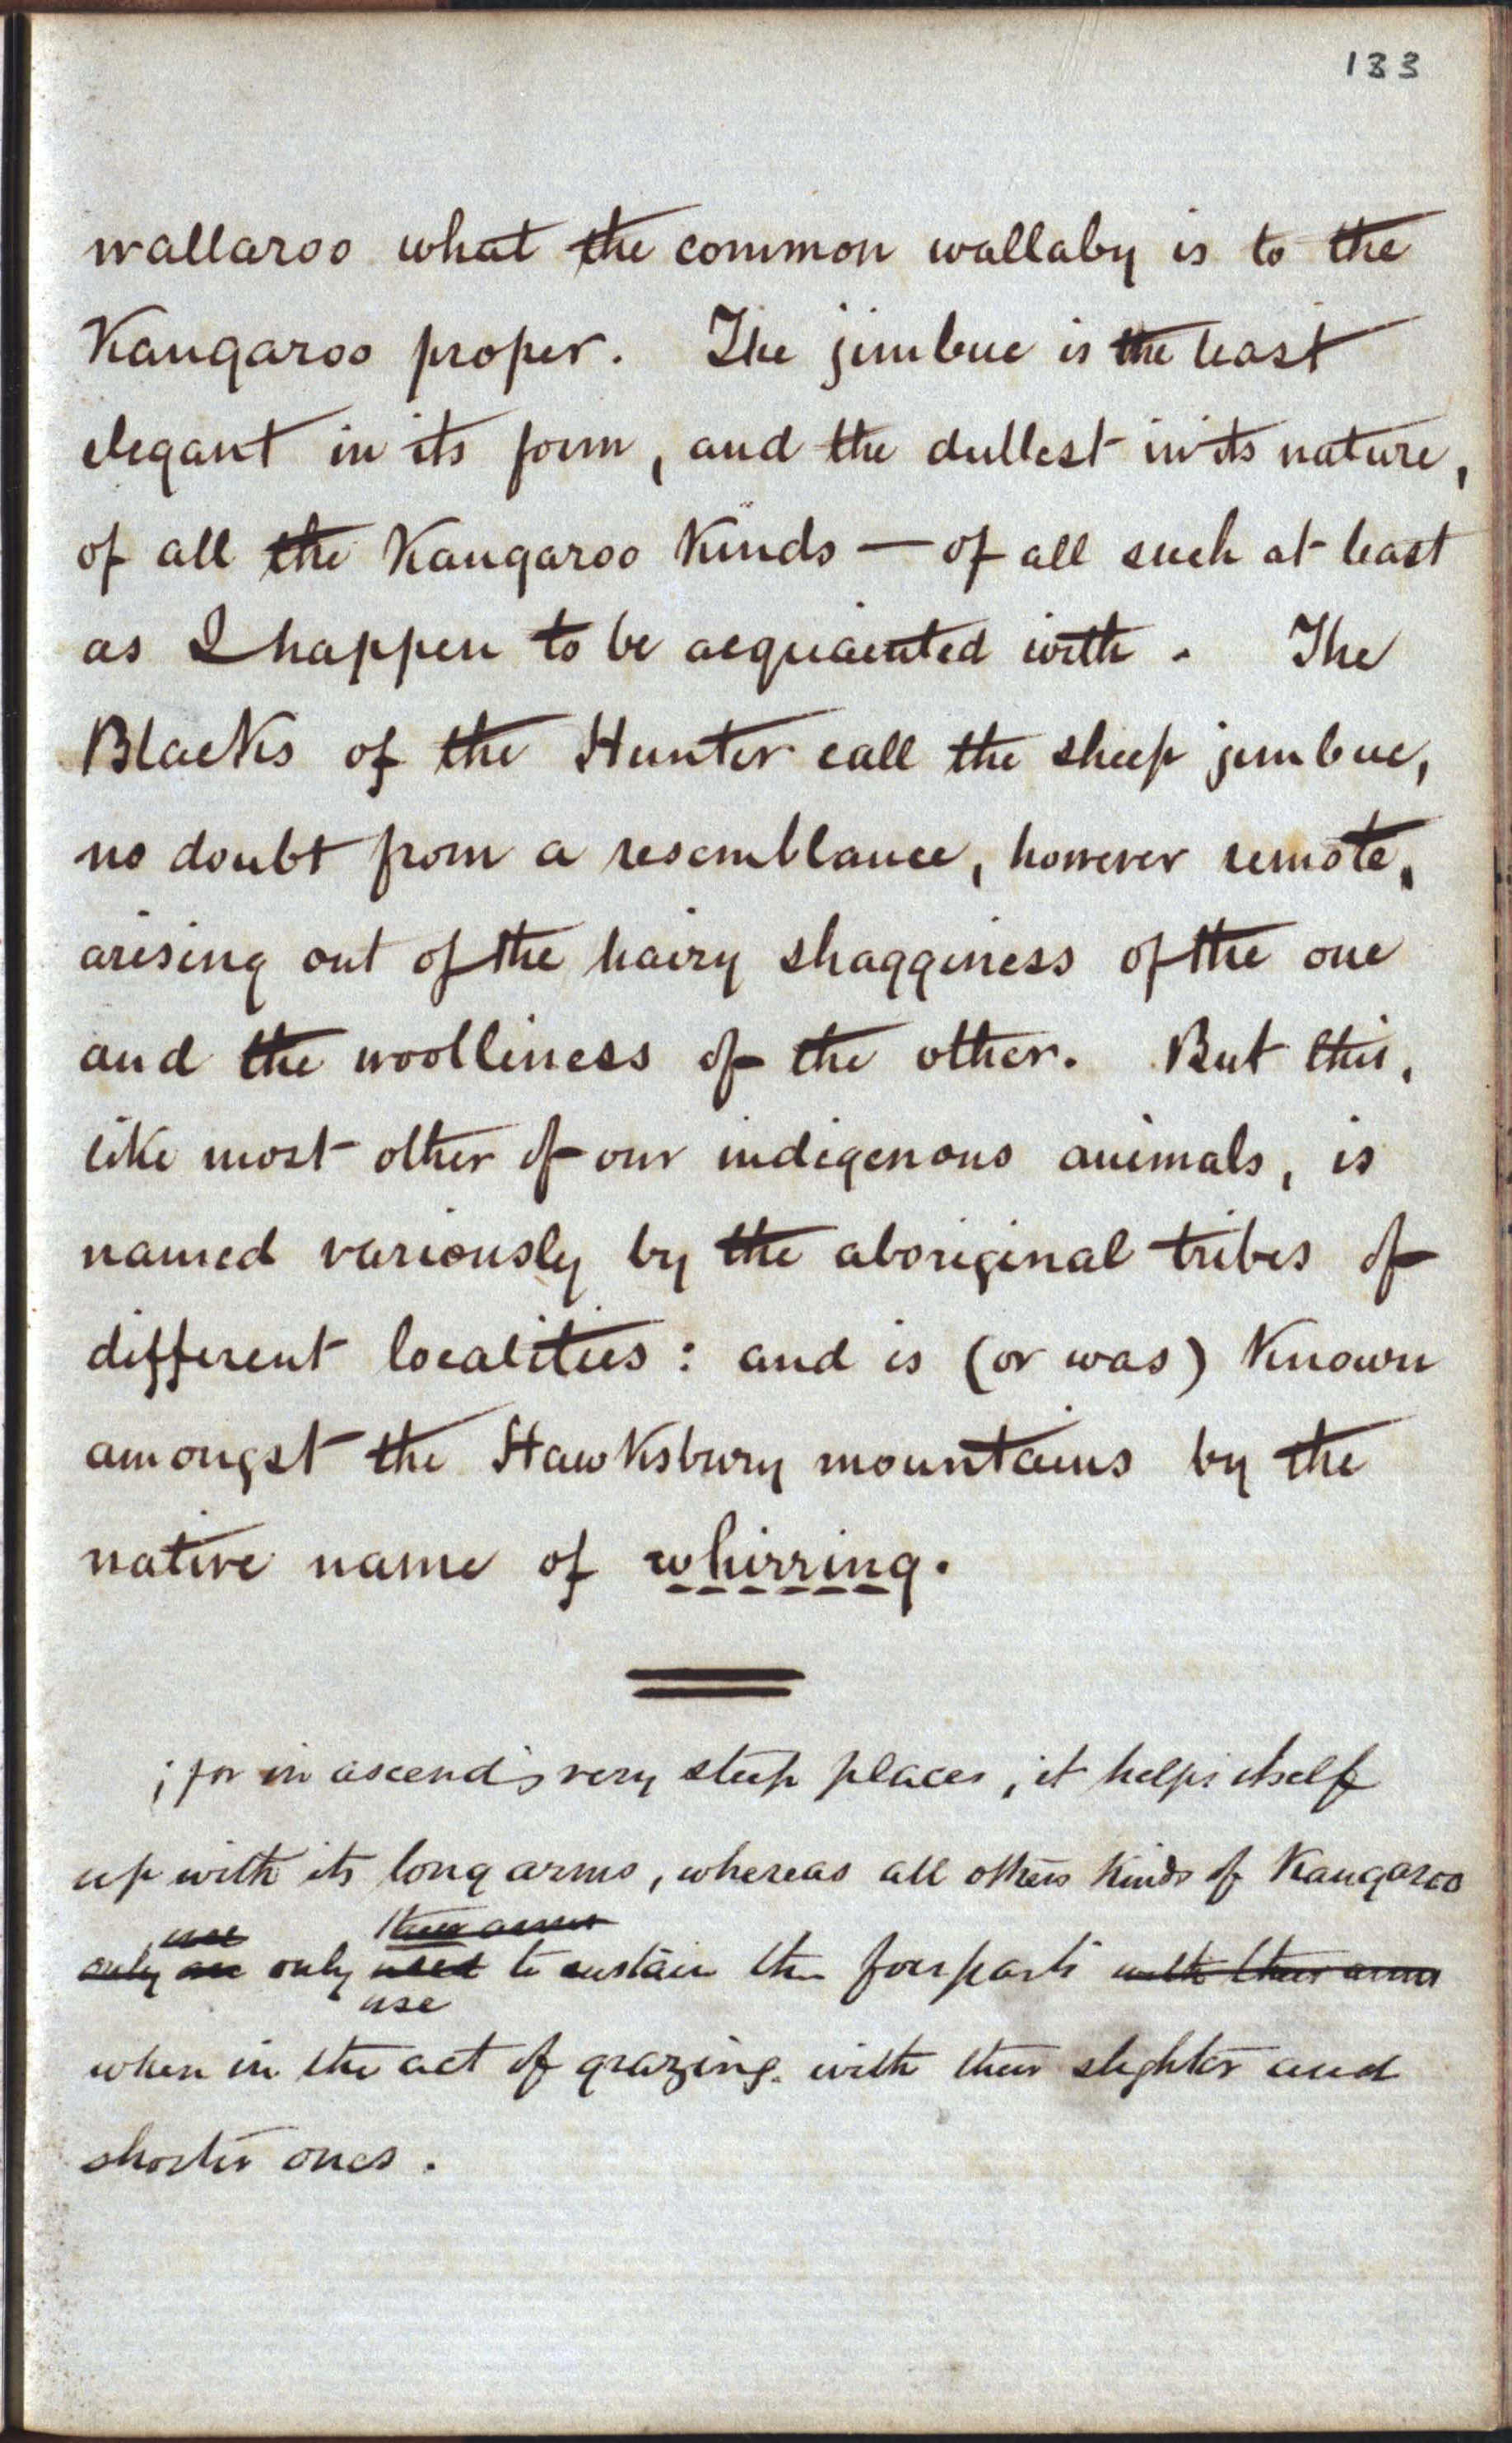 133
wallaroo what the common wallaby is to the
Kangaroo proper. The jimbuc is the least
elegant in its form, and the dullest in its nature,
of all the Kangaroo Kinds — of all such at least
as I happen to be acquainted with. The
Blacks of the Hunter call the sheep jimbuc,
no doubt from a resemblance, however remote,
arising out of the hairy shagginess of the one
and the woolliness of the other. But this,
like most other of our indigenous animals, is
named variously by the aboriginal tribes of
different localities: and is (or was) Known
amongst the Hawksbury mountains by the
native name of whirring.
; for in ascendg very steep places, it helps itself
up with its long arms, whereas all others Kinds of Kangaroo
use their arms
only are only used to sustain the foreparts with their arms
use
when in the act of grazing. with their slighter and
shorter ones.